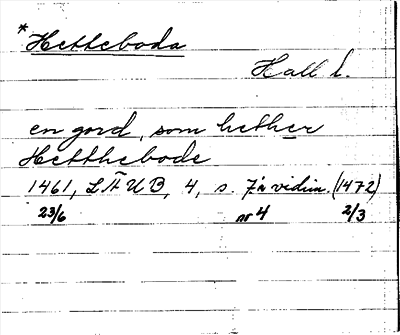 *Hetteboda
Hall l.
en gord, som hether
Hetthebode
1461, LÄUB, 4, s. 7 i vidim. (1472)
23/6 nr 4 2/3